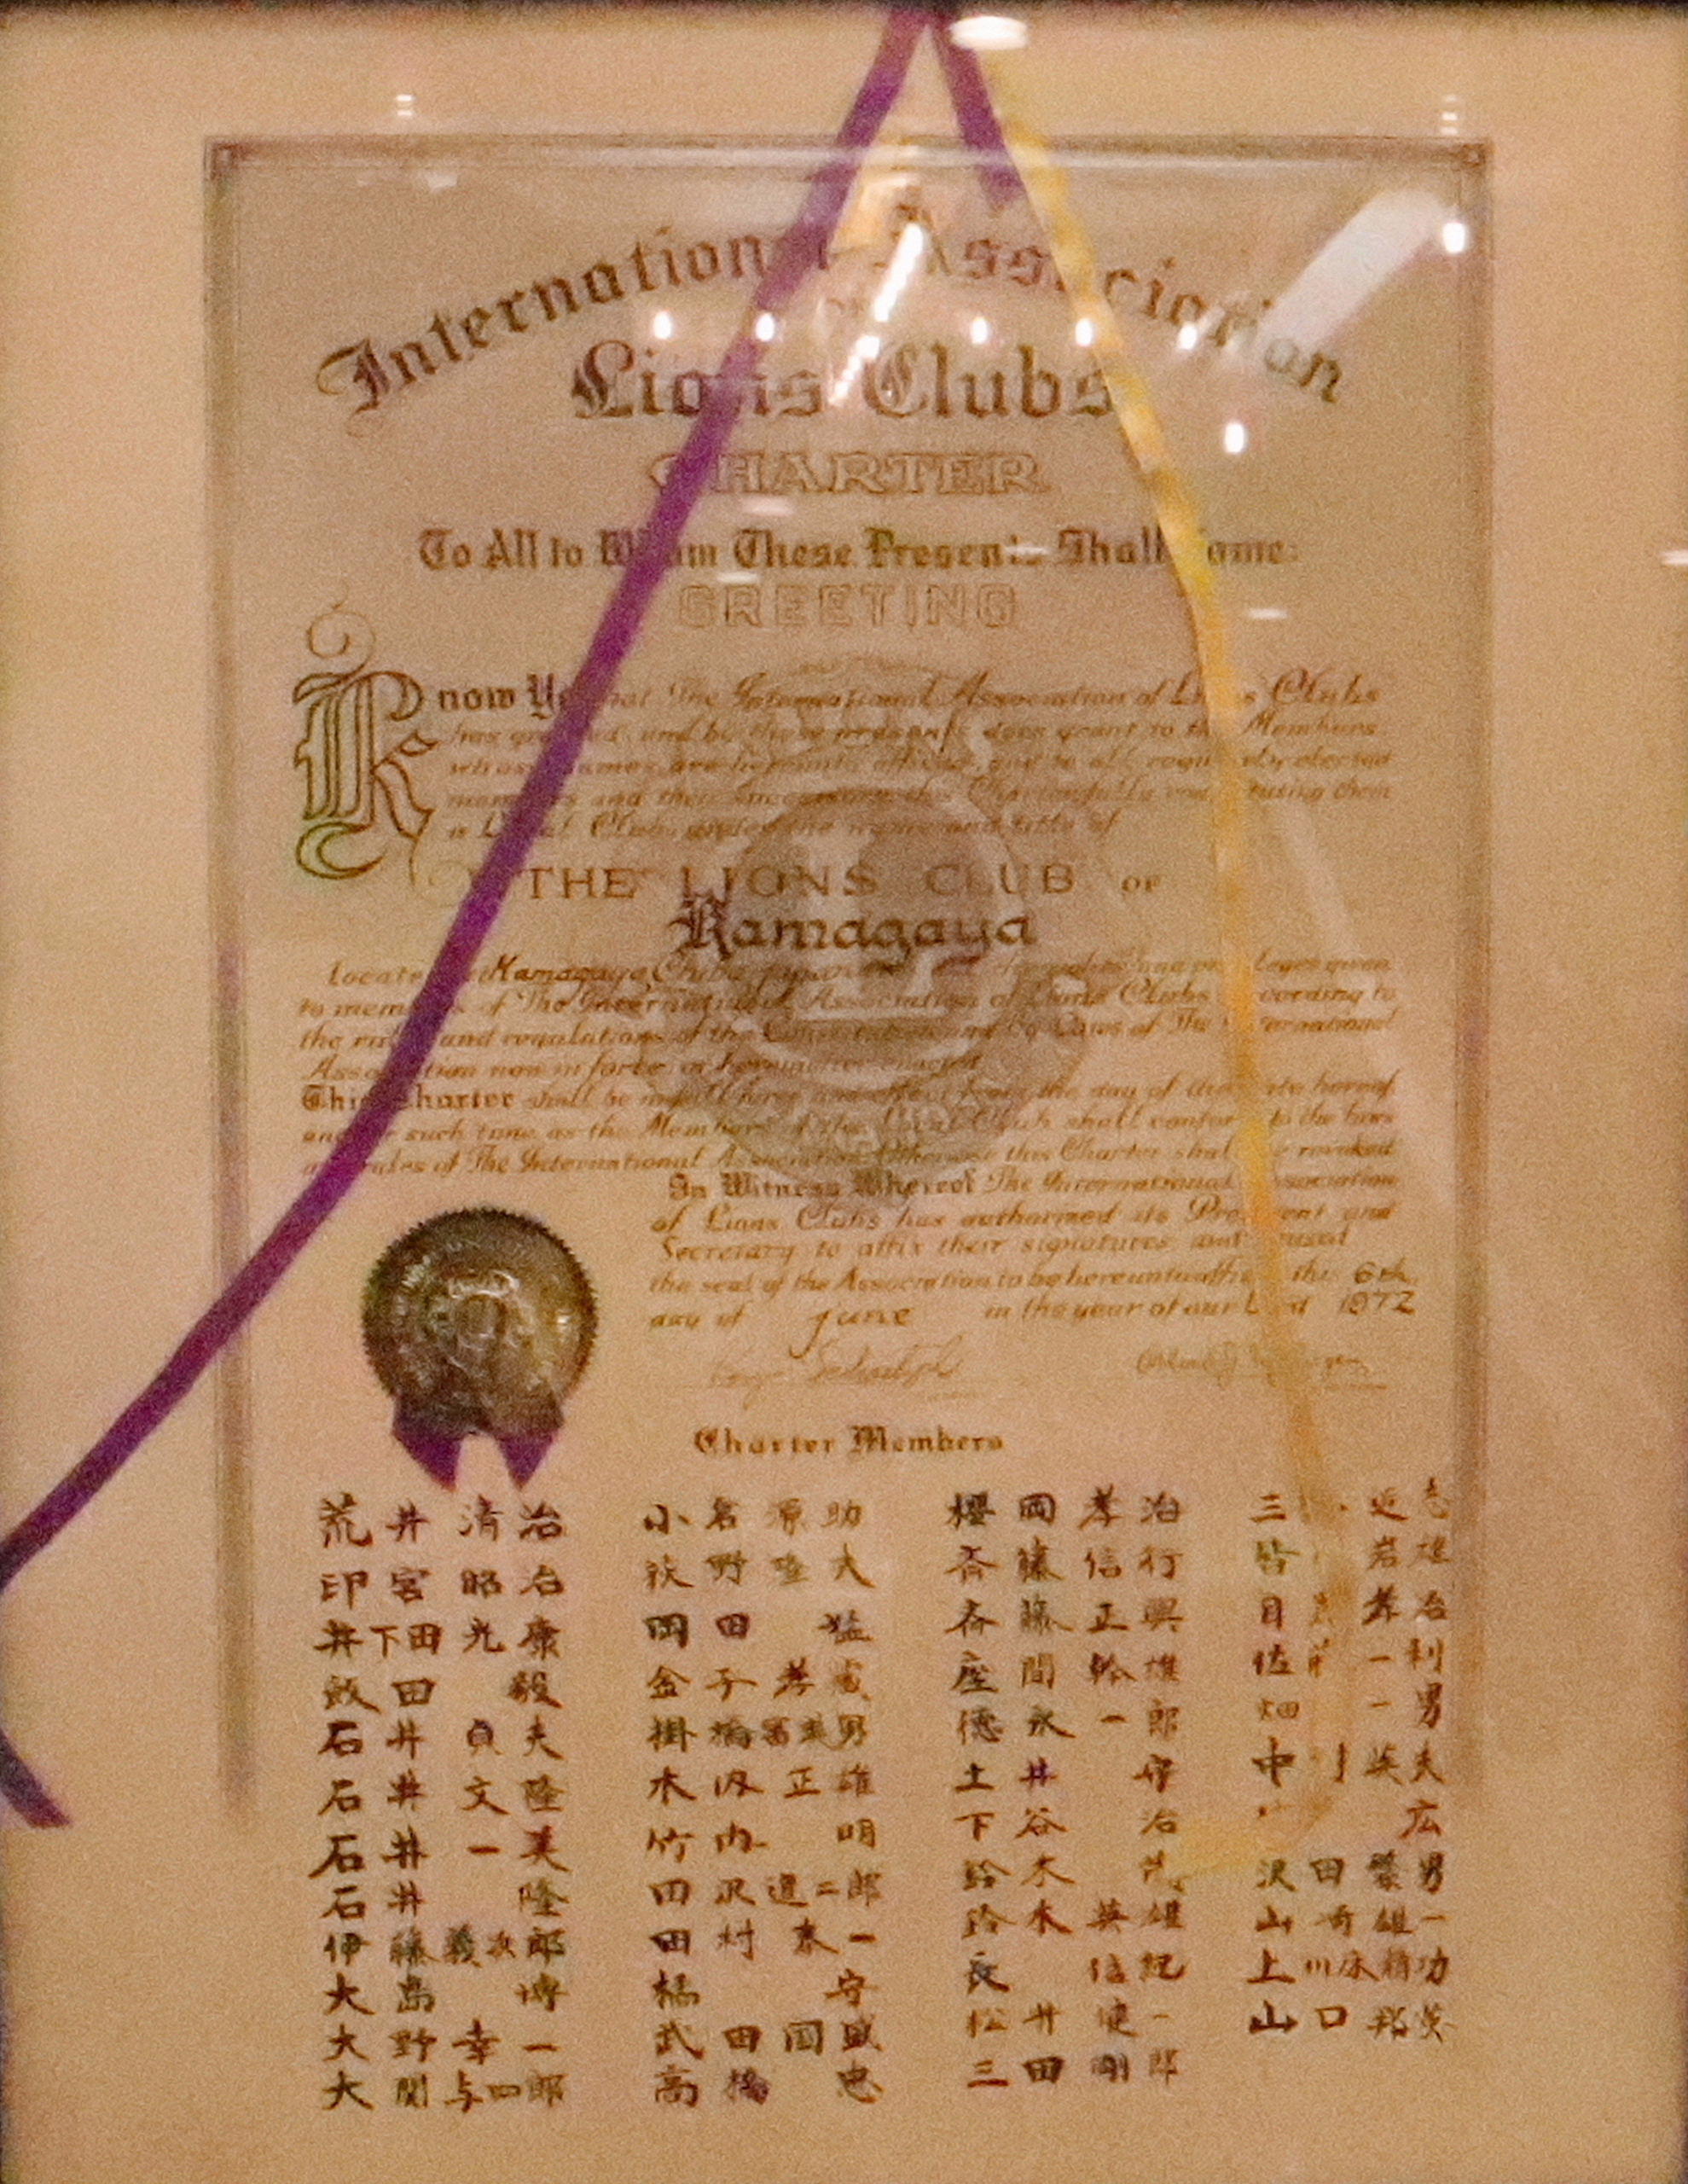 International Association
of
Lions Clubs
CHARTER
To All to Whom These Presents Shall Come:
GREETING
Know Ye that The International Association of Lions Clubs
has granted and by these presents does grant to the Members
whose names are hereunto affixed, and to all regularly elected
members and their successors this Charter constituting them
a Local Club under the name and title of
THE LIONS CLUB OF
Kamagaya
Located in Kamagaya, Chiba, Japan and privileges given
to members of The International Association of Lions Clubs according to
the rules and regulations of the Constitution and By-Laws of The International
Association now in force or hereinafter enacted
This Charter shall be in full force and effect from the day of the date hereof
and for such time as the Members of the Local Club shall conform to the laws
and rules of The International Association Otherwise this Charter shall be revoked
In Witness Whereof The International Association
of Lions Clubs has authorized its President and
Secretary to affix their signatures and caused
the seal of the Association to be hereunto affixed this 6th
day of June in the year of our Lord 1972
Charter Members
荒井清治
印宮昭治
井下田光康
飯田毅
石井貞夫
石井文隆
石井一美
石井隆
伊藤義次郎
大島博
大野幸一
大関与四郎
小名源助
荻野隆大
岡田猛
金子孝
掛橋男
木内正雄
竹内明
田沢道二郎
田村泰一
橘守
武田国盛
高橋忠
櫻岡孝治
斉藤信行
斉藤正興
座間幹雄
徳永一郎
土井守
下谷治
鈴木
鈴木英雄
長信紀
松井健一
三田剛郎
三
岩雄
目孝治
佐一利
畑一男
中英夫
広
沢田繁男
山崎雄一
上川床精功
山口邦英